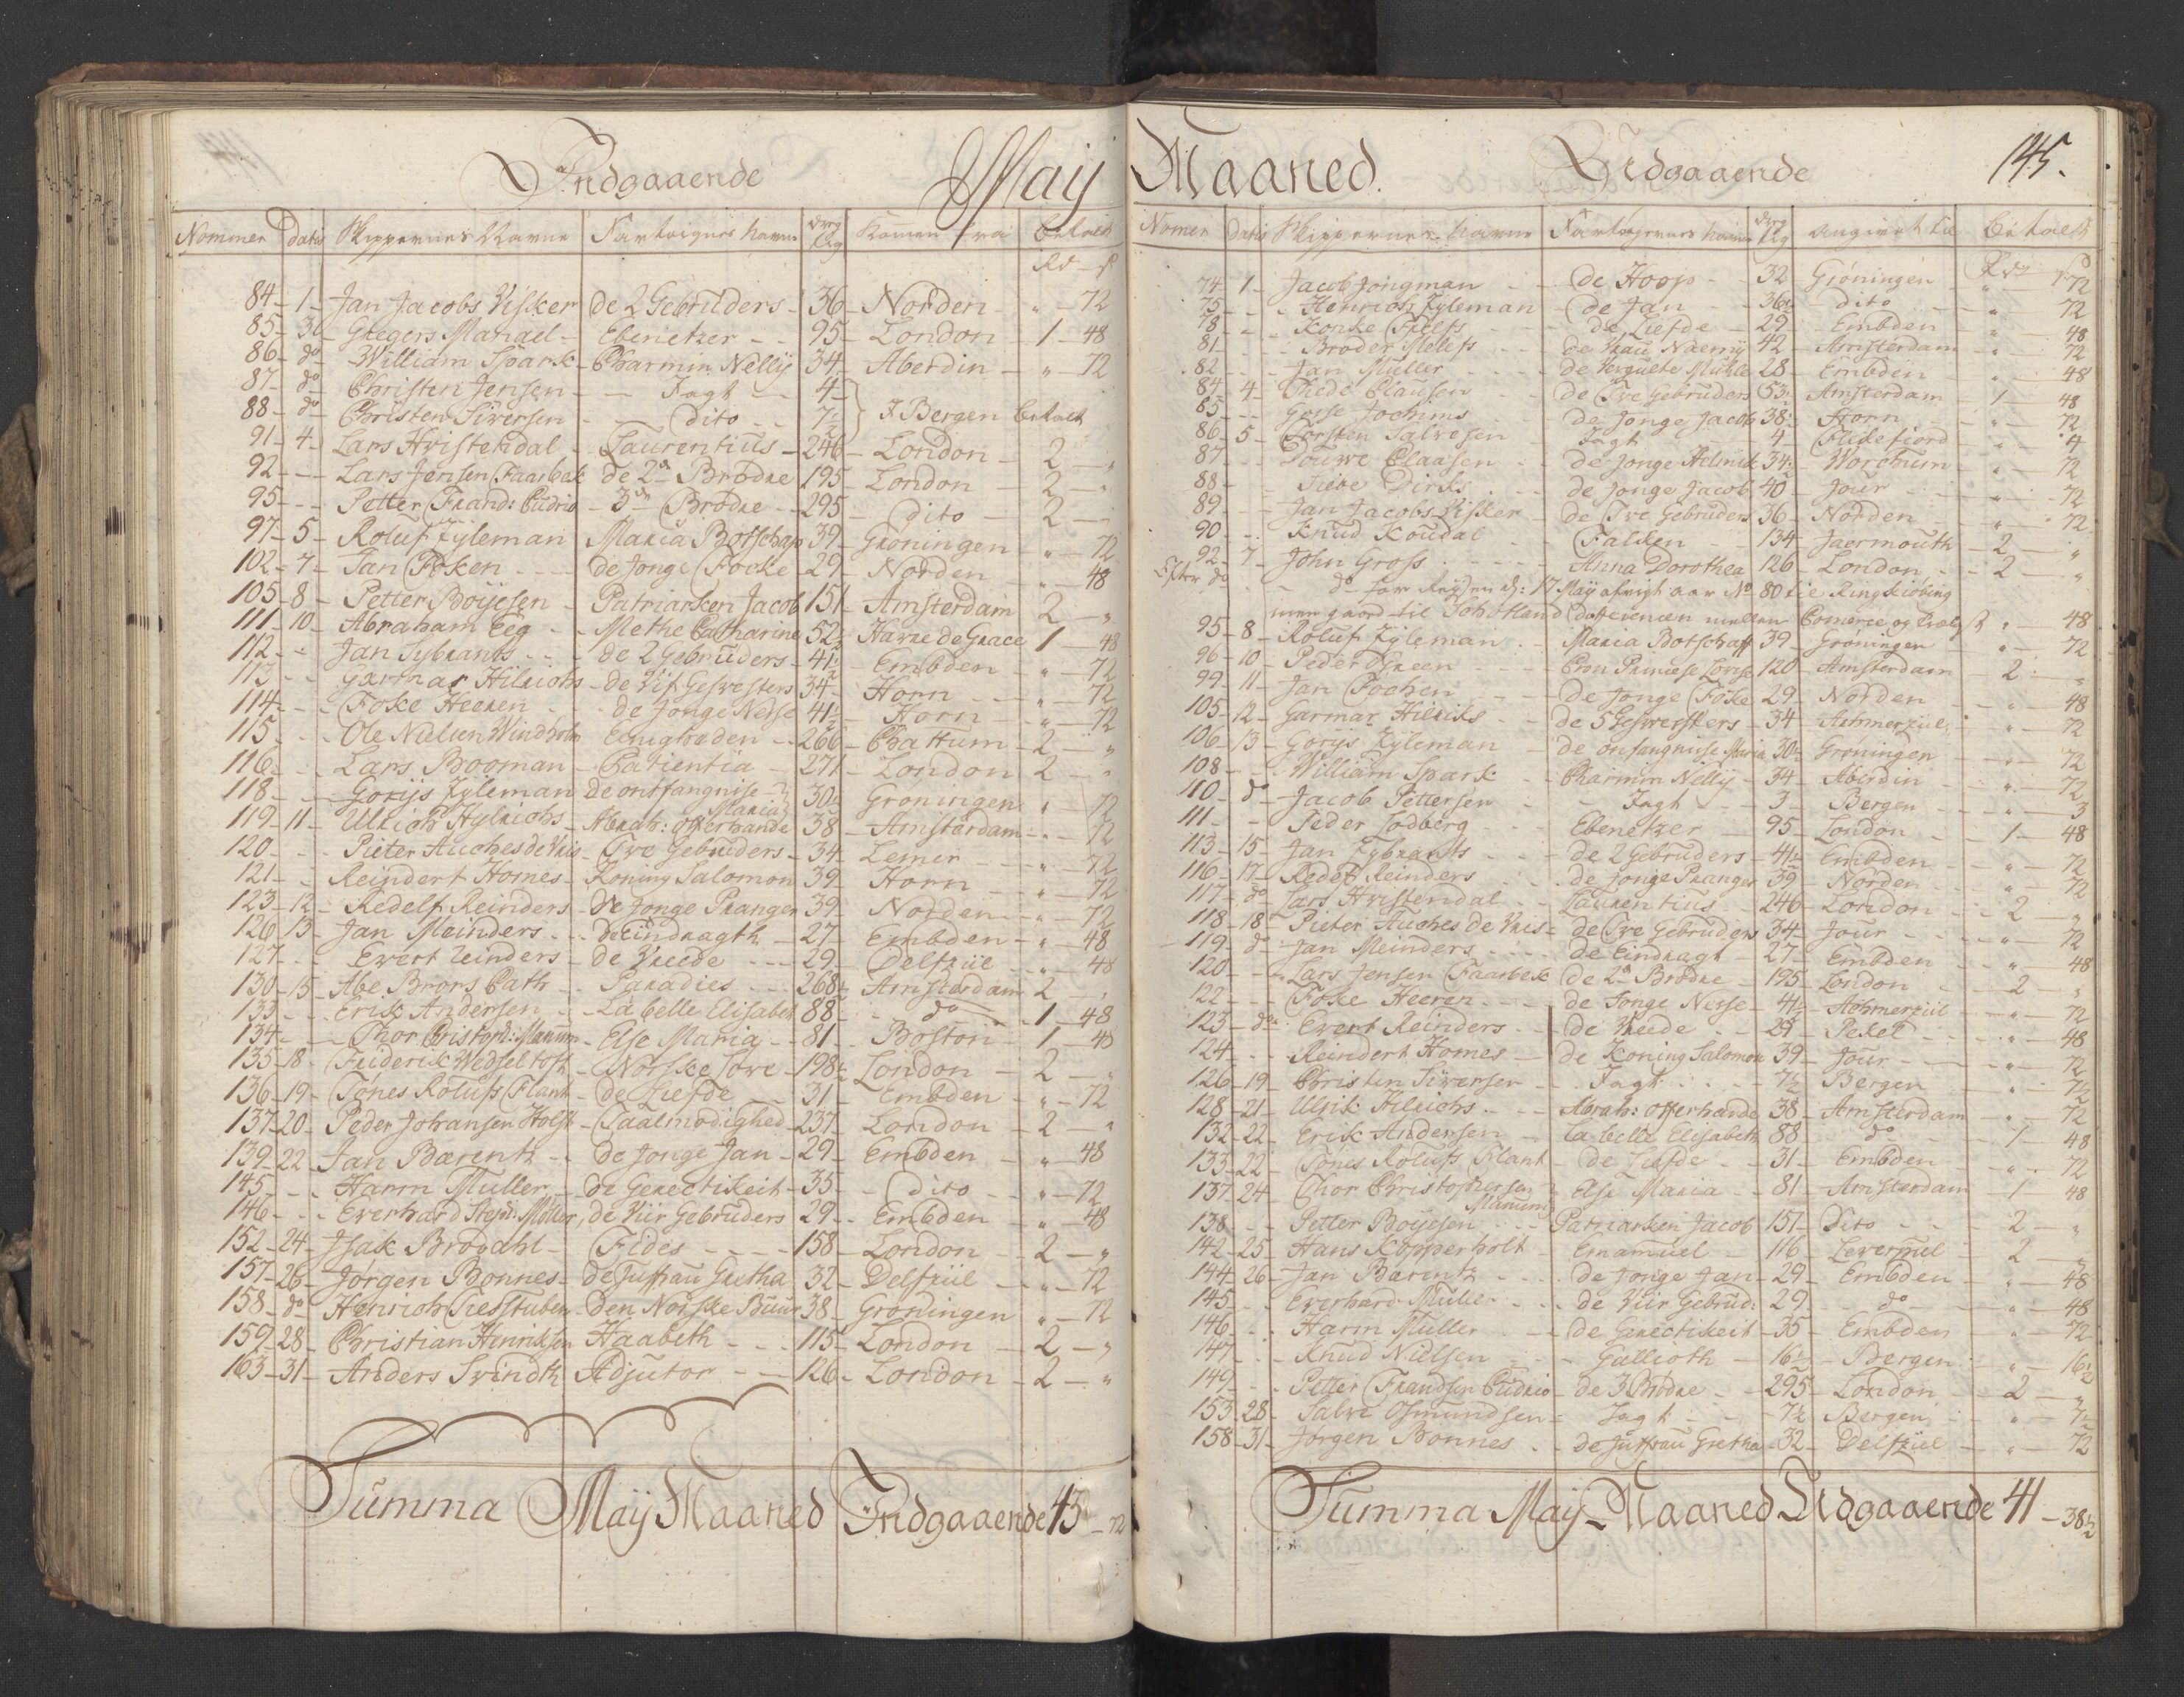 Indgaaende Maij
Nommer datis Skippernes Navne Fartøignes havne drg Lg Komen fra betalt
Rd ß
84 1 Jan Jacobs Visker de 2 Gebruders 36 Norden " 72
85 3 Gregers Manael Ebenetzer 95 London 1 48
86 do William Spark Charmin Nellij 34 Aberdin " 72
87 do Christen Jensen Jagt 4
88 do Christen Siversen dito 7½ I Bergen betalt
91 4 Lars Hvistendal Laurentius 246 London 2 "
92 Lars Jensen Faarbek de 2de Brødre 195 London 2 "
95 Petter Frand: Cudrio 3de Brødre 295 dito 2
97 5 Roluf Zyleman Maria Botschap 39 Grøningen " 72
102 7 Jan Foken de Jonge Fooke 29 Norden " 48
105 8 Petter Boijesen Patriarken Jacob 151 Amsterdam 2 "
111 10 Abraham Eeg Methe Catharine 52½ Havre de Grace 1 48
112 Jan Sybrants de 2 Gebruders 41½ Embden " 72
113 Garmar Hilrichs de Vif Gesvesters 34 Horn " 72
114 Foke Heeren de Jonge Nesse 41½ Horn " 72
115 Ole Nielsen Windholm Enigheden 266 Chattum 2 "
116 Lars Booman Patientia 271 London 2 "
118 Gorijs Zyleman de ontfangnise Maria 30½ Grøningen " 72
119 11 Ulrich Hylrichs Abrah: offerhande 38 Amsterdam " 72
120 Pieter Auches de Vries Tve Gebruders 34 Lemer " 72
121 Reindert Homes Koning Salomon 39 Horn " 72
123 12 Redelf Reinders De Jonge Pranger 39 Norden " 72
126 13 Jan Meinders De Eindragth 27 Embden " 48
127 Evert Reinders de Vreede 29 Delfziil " 48
130 15 Abe Brors Path Paradies 268½ Amsterdam 2 "
133 Erik Andersen La belle Elisabet 88 do 1 48
134 Thor Christoph: Manum Else Maria 81 Boston 1 48
135 18 Friderik Wedseltoft Norske Løve 198½ London 2 "
136 19 Tønes Rolufs Plant de Liefde 31 Embden " 72
137 20 Peder Johansen Holst Taalmodighed 237 London 2 "
139 22 Jan Barentz de Jonge Jan 29 Embden " 48
145 Harm Muller de Gerectikeit 35 dito " 72
146 Everhard Steph: Møller de Viir Gebruders 29 Embden " 48
152 24 Isak Brodahl Fides 158 London 2 "
157 26 Jørgen Bonnes de Juffrau Gretha 32 Delfziil " 72
158 do Henrich Tiesstuben den Norske Buur 38 Grøningen " 72
159 28 Christian Henriksen Haabeth 115 London 2 "
163 31 Anders Svindth Adjutor 126 London 2 "
Summa Maij Maaned Indgaaende 43 72
Maaned Udgaaende 145.
Nomer datis Skippernes havne Fartøyernes havne drg Lg angivet til betalt
Rdr ß
74 1 Jacob Jongman de Hoop 32 Grøningen " 72
75 Henrich Zyleman de Jan 36½ dito " 72
78 Konke Fleefs de Liefde 29 Embden " 48
81 Broder Melefs de Vrau Naemij 42 Amsterdam " 72
82 Jan Muller de Vergulte Muhle 28 Embden " 48
84 4 Thede Clausen de Tve Gebruders 53 Amsterdam 1 48
85 Gosse Jochims de Jonge Jacob 38½ Horn " 72
86 5 Torsten Salvesen Jagt 4 Flekefiord " 4
87 Douwe Claasen de Jonge Helmich 34½ Worchum " 72
88 Siebe Dirks de Jonge Jacob 40 Jour " 72
89 Jan Jacobs Visker de Tve Gebruders 36 Norden " 72
90 Knud Koudal Falken 134 Jaermouth 2 "
92 7 John Gross Anna Dorothea 126 London 2 "
Efter do do for Reysen d: 17 Maij afvigt aar No 80 til Ringkiøbing
men gaaed til Schotland Differencen mellem Comerce og " 48
95 8 Roluf Zyleman Maria Botschaff 39 Grøningen " 72
96 10 Peder Green Cron Princesse Lovise 120 Amsterdam 2 "
99 11 Jan Fochen de Jonge Foke 29 Norden " 48
105 12 Garmar Hilriks de 5 Gesvesters 34 Achmerziil " 72
106 13 Gorijs Zyleman de onfangnise Maria 30½ Grøningen " 72
108 William Spark Charmin Nellij 34 Aberdin " 72
110 do Jacob Pettersen Jagt 3 Bergen " 3
111 Peder Lodberg Ebenetzer 95 London 1 48
113 15 Jan Zybrants de 2 Gebruders 41½ Embden " 72
116 17 Redelf Reinders de Jonge Pranger 39 Norden " 72
117 do Lars Hvistendal Laurentius 246 London 2 "
118 18 Pieter Auches de Vris de Tve Gebruders 34 Jour " 72
119 do Jan Meinders de Eindragt 27 Embden " 48
120 Lars Jensen Faarbek de 2de Brødre 195 London 2 "
122 Foke Heeren de Jonge Nesse 41½ Achmerziil " 72
123 do Evert Reinders de Vreede 29 Pekel " 48
124 Reindert Homes de Koning Salomon 39 Jour " 72
126 19 Christen Siversen Jagt 7½ Bergen " 7½
128 21 Ulrik Hilrichs Abrah: offerhande 38 Amsterdam " 72
132 22 Erik Andersen La belle Elisabeth 88 do 1 48
133 22 Tønis Rolufs Plant de Liefde 31 Embden " 72
137 24 Thor Christophersen Manum Else Maria 81 Amsterdam 1 48
138 Petter Boijesen Patriarken Jacob 151 Dito 2 "
142 25 Hans Kopperholt Emamuel 116 Leverpul 2 "
144 26 Jan Barentz de Jonge Jan 29 Embden " 48
145 Everhard Muller de Viir Gebrud: 29 do " 48
146 Harm Muller de Gerectikeit 35 Embden " 72
147 Knud Nielsen Gallioth 16½ Bergen " 16½
149 Petter Frandsen Cudrio de 3 Brødre 295 London 2 "
153 28 Salve Osmundsen Jagt 7½ Bergen " 7½
158 31 Jørgen Bonnes de Juffrau Gretha 32 Delfziil " 72
Summa Maij Maaned Udgaaende 41 38½